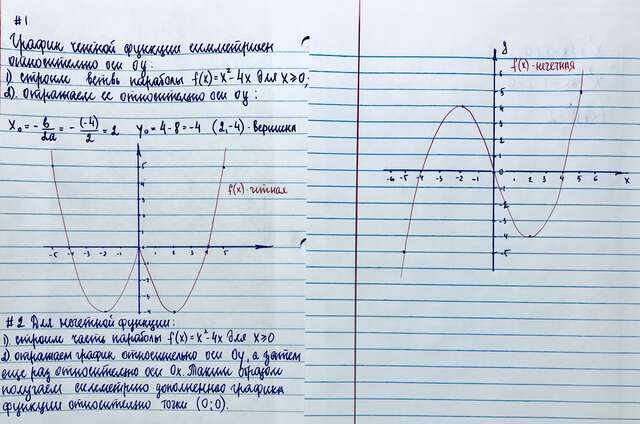 #1
График четной функции симметричен
относительно оси oy:
1) строим ветвь параболы f(x)=x²-4x для x≥0;
2). отражаем ее относительно оси oy:
x₀ = -b/2a = -(-4)/2 = 2 y₀ = 4-8 = -4 (2,-4)-вершина
f(x)-четная
-5 -4 -3 -2 -1 0 1 2 3 4 5
#2 Для нечетной функции:
1) строим часть параболы f(x)=x²-4x для x≥0
2) отражаем график относительно оси Oy, а затем
еще раз относительно оси Ox. Таким образом
получаем симметрию дополненно графика
функции относительно точки (0;0).
y
f(x)-нечетная
-6 -5 -4 -3 -2 -1 0 1 2 3 4 5 6 x